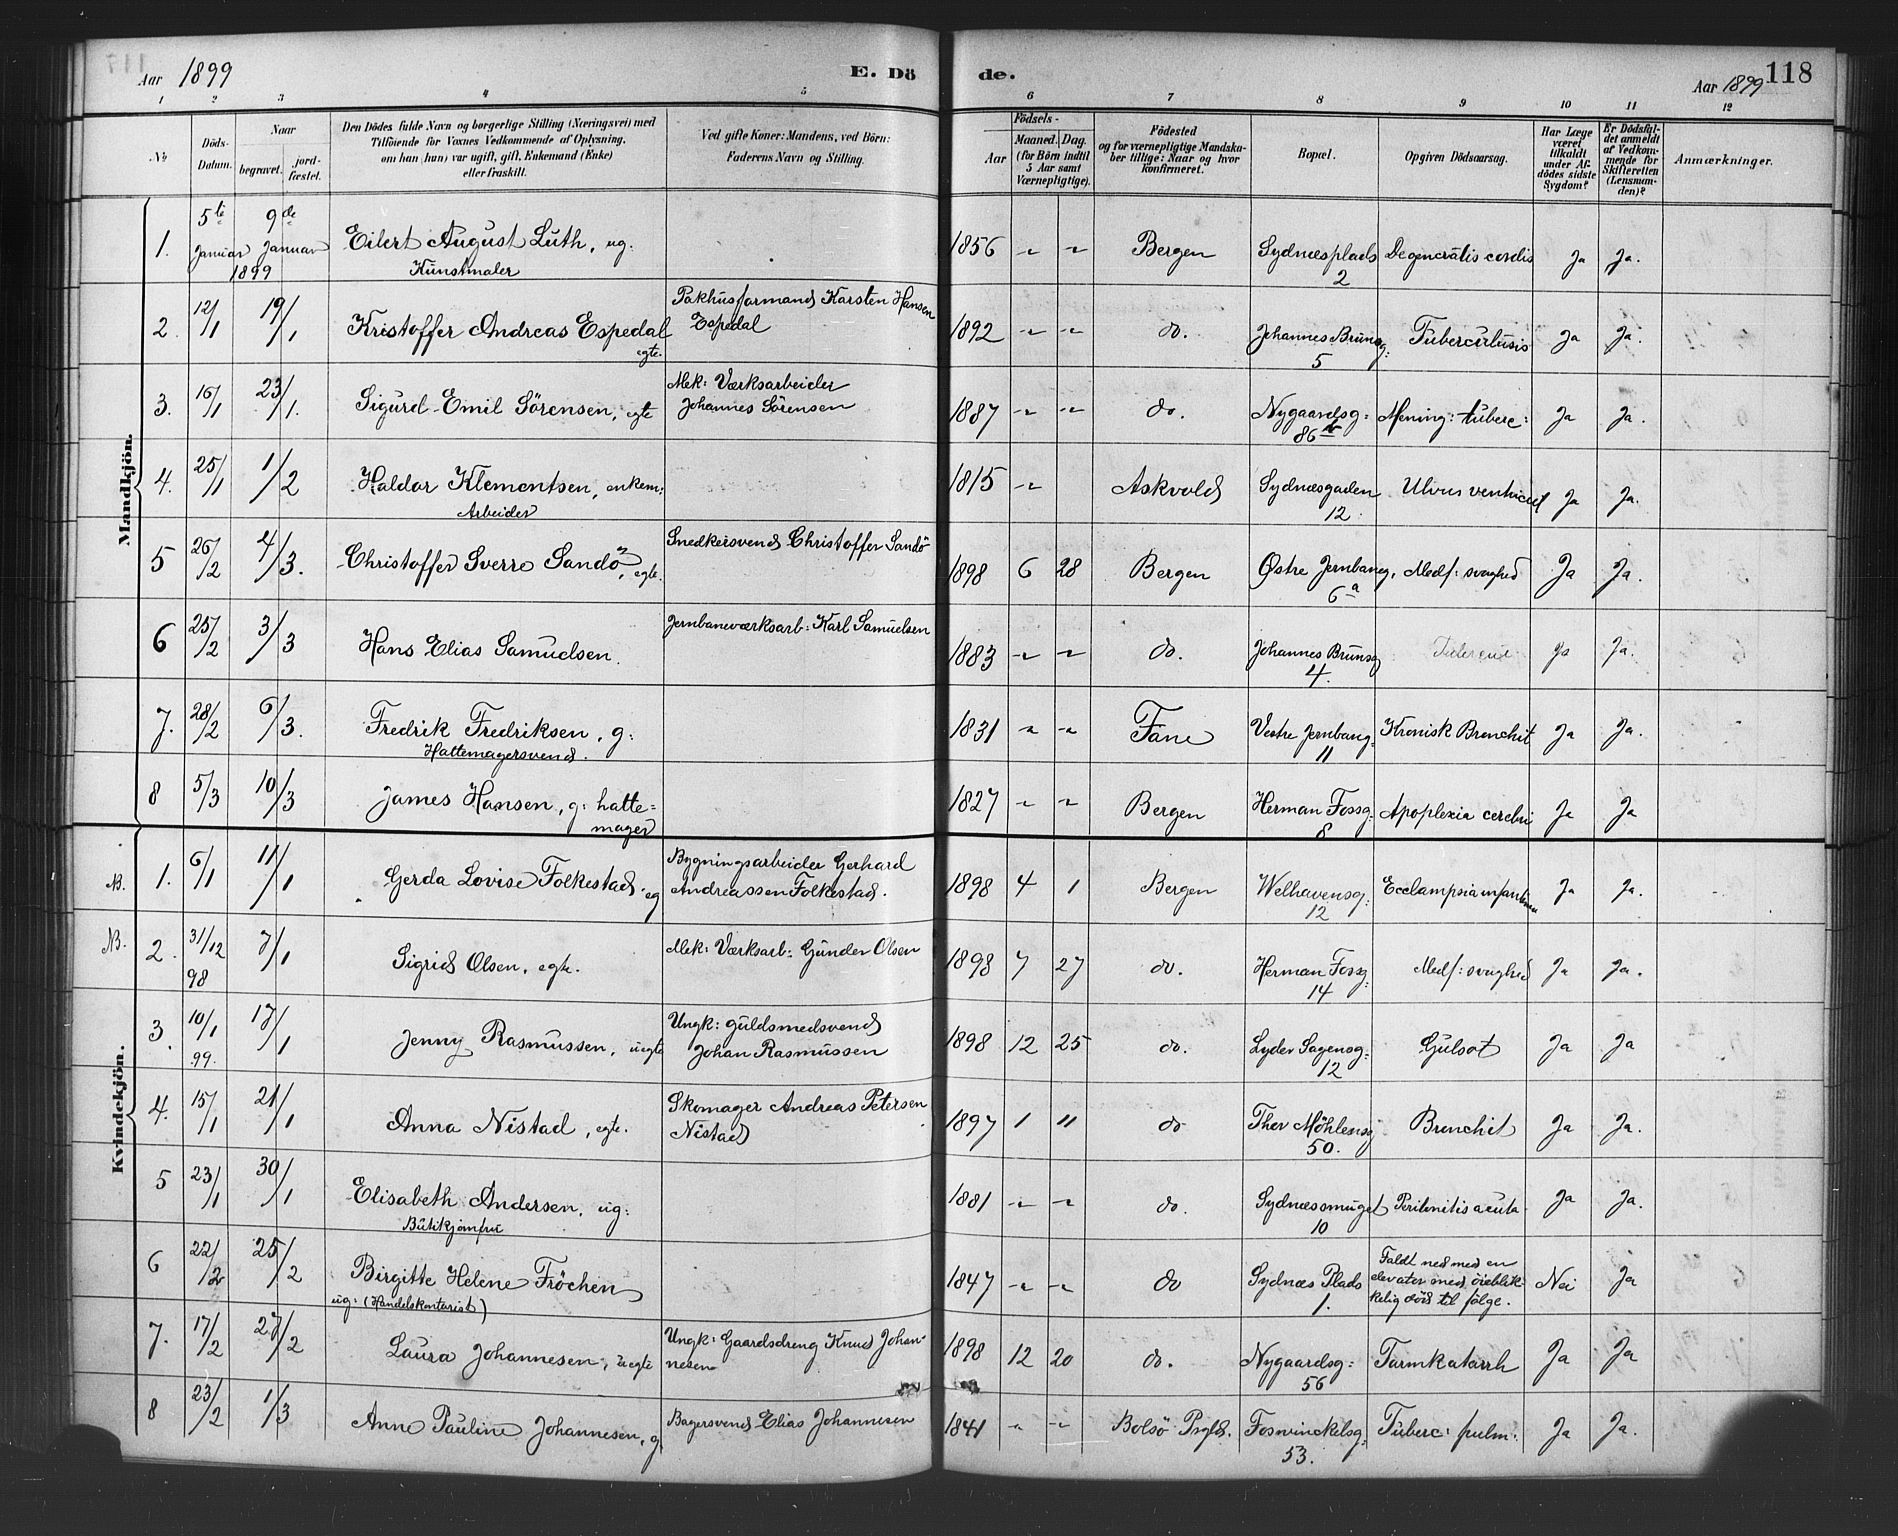 Aar 1899 E. Dö de. Aar 1899 118
1 2 3 4 5 6 7 8 9 10 11 12
No
Döds-
Datum.
Naar
begravet.
jord-
fæstet.
Den Dödes fulde Navn og borgerlige Stilling (Næringsvei) med
Tilföiende for Voxnes Vedkommende af Oplysning,
om han (hun) var ugift, gift, Enkemand (Enke)
eller fraskilt.
Ved gifte Koner: Mandens, ved Börn:
Faderens Navn og Stilling.
Födsels-
Aar
Maaned. Dag.
(for Börn indtil
5 Aar samt
Værnepligtige).
Födested
og for værnepligtige Mandska-
ber tillige: Naar og hvor
konfirmeret.
Bopæl.
Opgiven Dödsaarsag.
Har Læge
været
tilkaldt
under Af-
dödes sidste
Sygdom?
Er Dödsfal-
det anmeldt
af Vedkom-
mende for
Skifteretten
(Lensman-
den)?
Anmærkninger.
Mandkjön.
1. 5te Januar 9de Januar 1899 Eilert August Luth, ug. Kunstmaler 1856 " " Bergen Sydnæsplads 2 Degeneratis cordis Ja Ja.
2. 12/1 19/1 Kristoffer Andreas Espedal egte. Pakhusformand Karsten Hansen Espedal 1892 " " do. Johannes Brunsg: 5 Tuberculosis Ja Ja.
3. 16/1 23/1. Sigurd Emil Sörensen, egte Mek: Værksarbeider Johannes Sörensen 1887 " " do. Nygaardsg: 86 b Mening: tuberc: Ja Ja.
4. 25/1 1/2 Haldor Klementsen, enkem: Arbeider 1815 " Askvold Sydnæsgaden 12. Ulcus ventriculi Ja Ja.
5 26/2 4/3. Christoffer Sverre Sandö, egte. Snedkersvend Christoffer Sandö 1898 6 28 Bergen Østre Jernbaneg, 6a Medf: svaghed Ja Ja.
6 25/2 3/3 Hans Elias Samuelsen. Jernbaneværksarb: Karl Samuelsen 1883 " " do. Johannes Brunsg 4. Ja Ja.
7. 28/2 6/3. Fredrik Fredriksen, g: Hattemagersvend. 1831 " " Fane Vestre Jernbang: 11 Kronisk Bronchit Ja Ja.
8 5/3 10/3 James Hansen, g: hatte= mager 1827 " " Bergen Herman Fossg: 8 Apoplexia cerebri Ja Ja
Kvindekjön.
NB. 1. 6/1 11/1 Gerda Lovise Folkestad eg Bygningsarbeider Gerhard Andreassen Folkestad. 1898 4 1 Bergen Welhavensg: 12 Ecclampsia infantum Ja Ja.
NB. 2. 31/12 98 7/1 Sigrid Olsen, egte. Mek: Værksarb: Gunder Olsen 1898 7 27 do. Herman Fossg: 14 Medf: svaghed Ja Ja.
3. 10/1 99. 17/1 Jenny Rasmussen, uegte Ungk: guldsmedsvend Johan Rasmussen 1898 12 25 do. Lyder Sagensg: 12 Gulsot Ja Ja
4. 15/1 21/1 Anna Nistad, egte. Skomager Andreas Petersen Nistad 1897 1 11 do Thor Möhlensg 50. Bronchit Ja Ja.
5 23/1 30/1 Elisabeth Andersen, ug: Butikjomfru 1881 " " do. Sydnæssmuget 10 Peritonitis acuta Ja Ja.
6 22/2 25/2 Birgitte Helene Fröchen ug: (Handelskontorist) 1847 " " do Sydnæs Plads 1. Faldt ned med en elevator med öieblik- kelig död til fölge. Nei Ja
7. 17/2 27/2 Laura Johannesen, uegte Ungk: Gaardsdreng Knud Johan- nesen 1898 12 20 do. Nygaardsg: 56 Tarmkatarrh Ja Ja
8 23/2 1/3 Anne Pauline Johannesen, g. Bagersvend Elias Johannesen 1841 " " Bolsö Prgld. Fosswinckelsg: 53. Tuberc: pulm: Ja Ja.